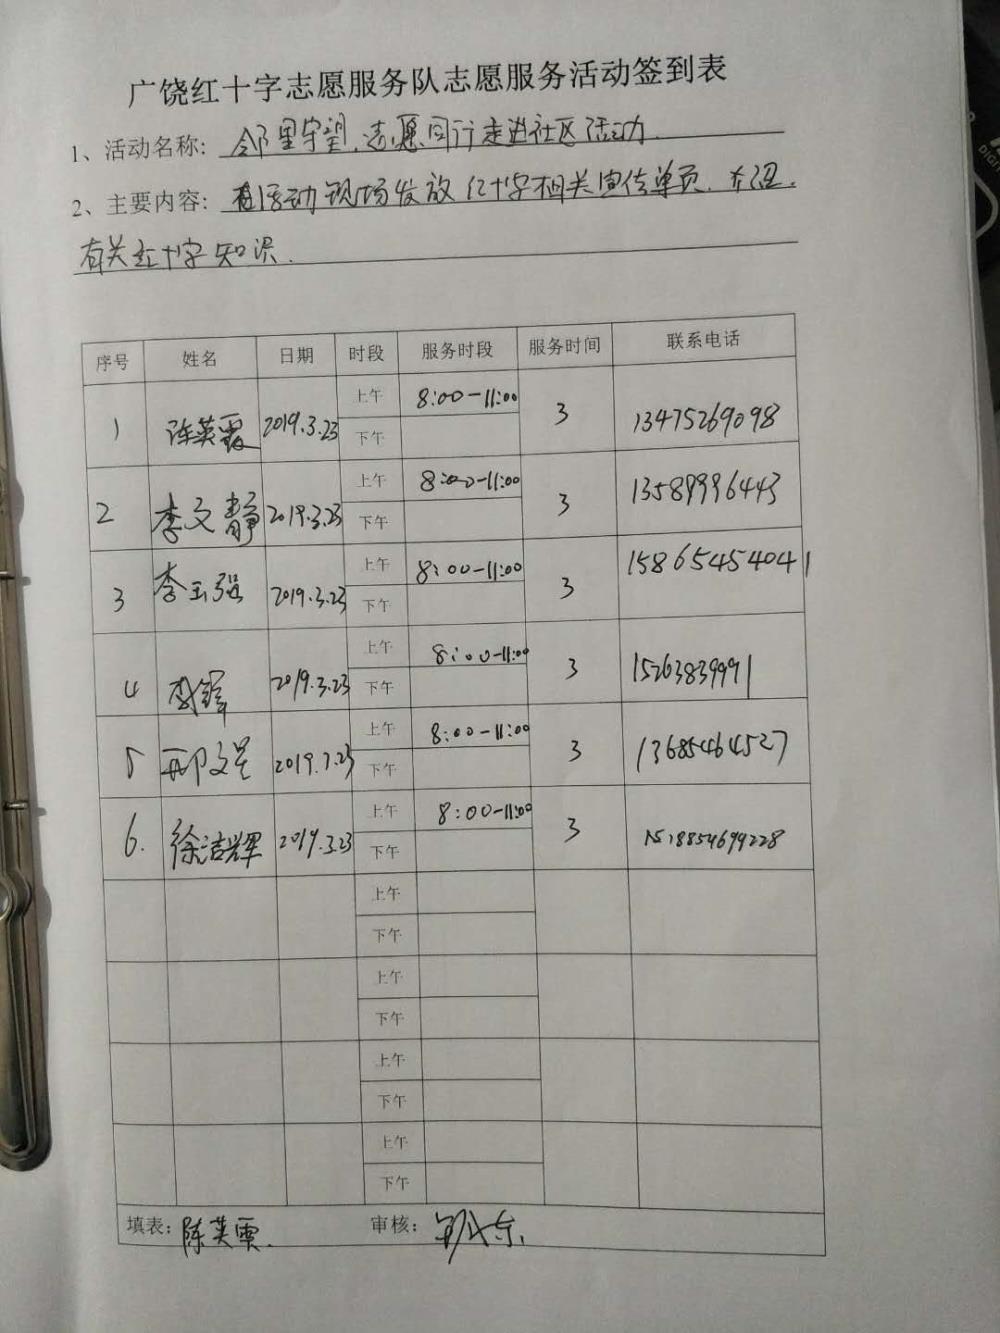 广饶红十字志愿服务队志愿服务活动签到表
1、活动名称: 邻里守望,志愿同行走进社区活动.
2、主要内容: 在活动现场发放红十字相关宣传单页.介绍.
有关红十字知识.
序号 姓名 日期 时段 服务时段 服务时间 联系电话
1 陈英霞 2019.3.23 上午 8:00-11:00 3 13475269098
下午
2 李文静 2019.3.23 上午 8:00-11:00 3 13589996443
下午
3 李玉强 2019.3.23 上午 8:00-11:00 3 15865454041
下午
4 2019.3.23 上午 8:00-11:00 3 15263839991
下午
5 邢文星 2019.3.23 上午 8:00-11:00 3 13685464527
下午
6. 徐洁辉 2019.3.23 上午 8:00-11:00 3
下午
上午
下午
上午
下午
上午
下午
上午
下午
填表: 陈英霞. 审核: